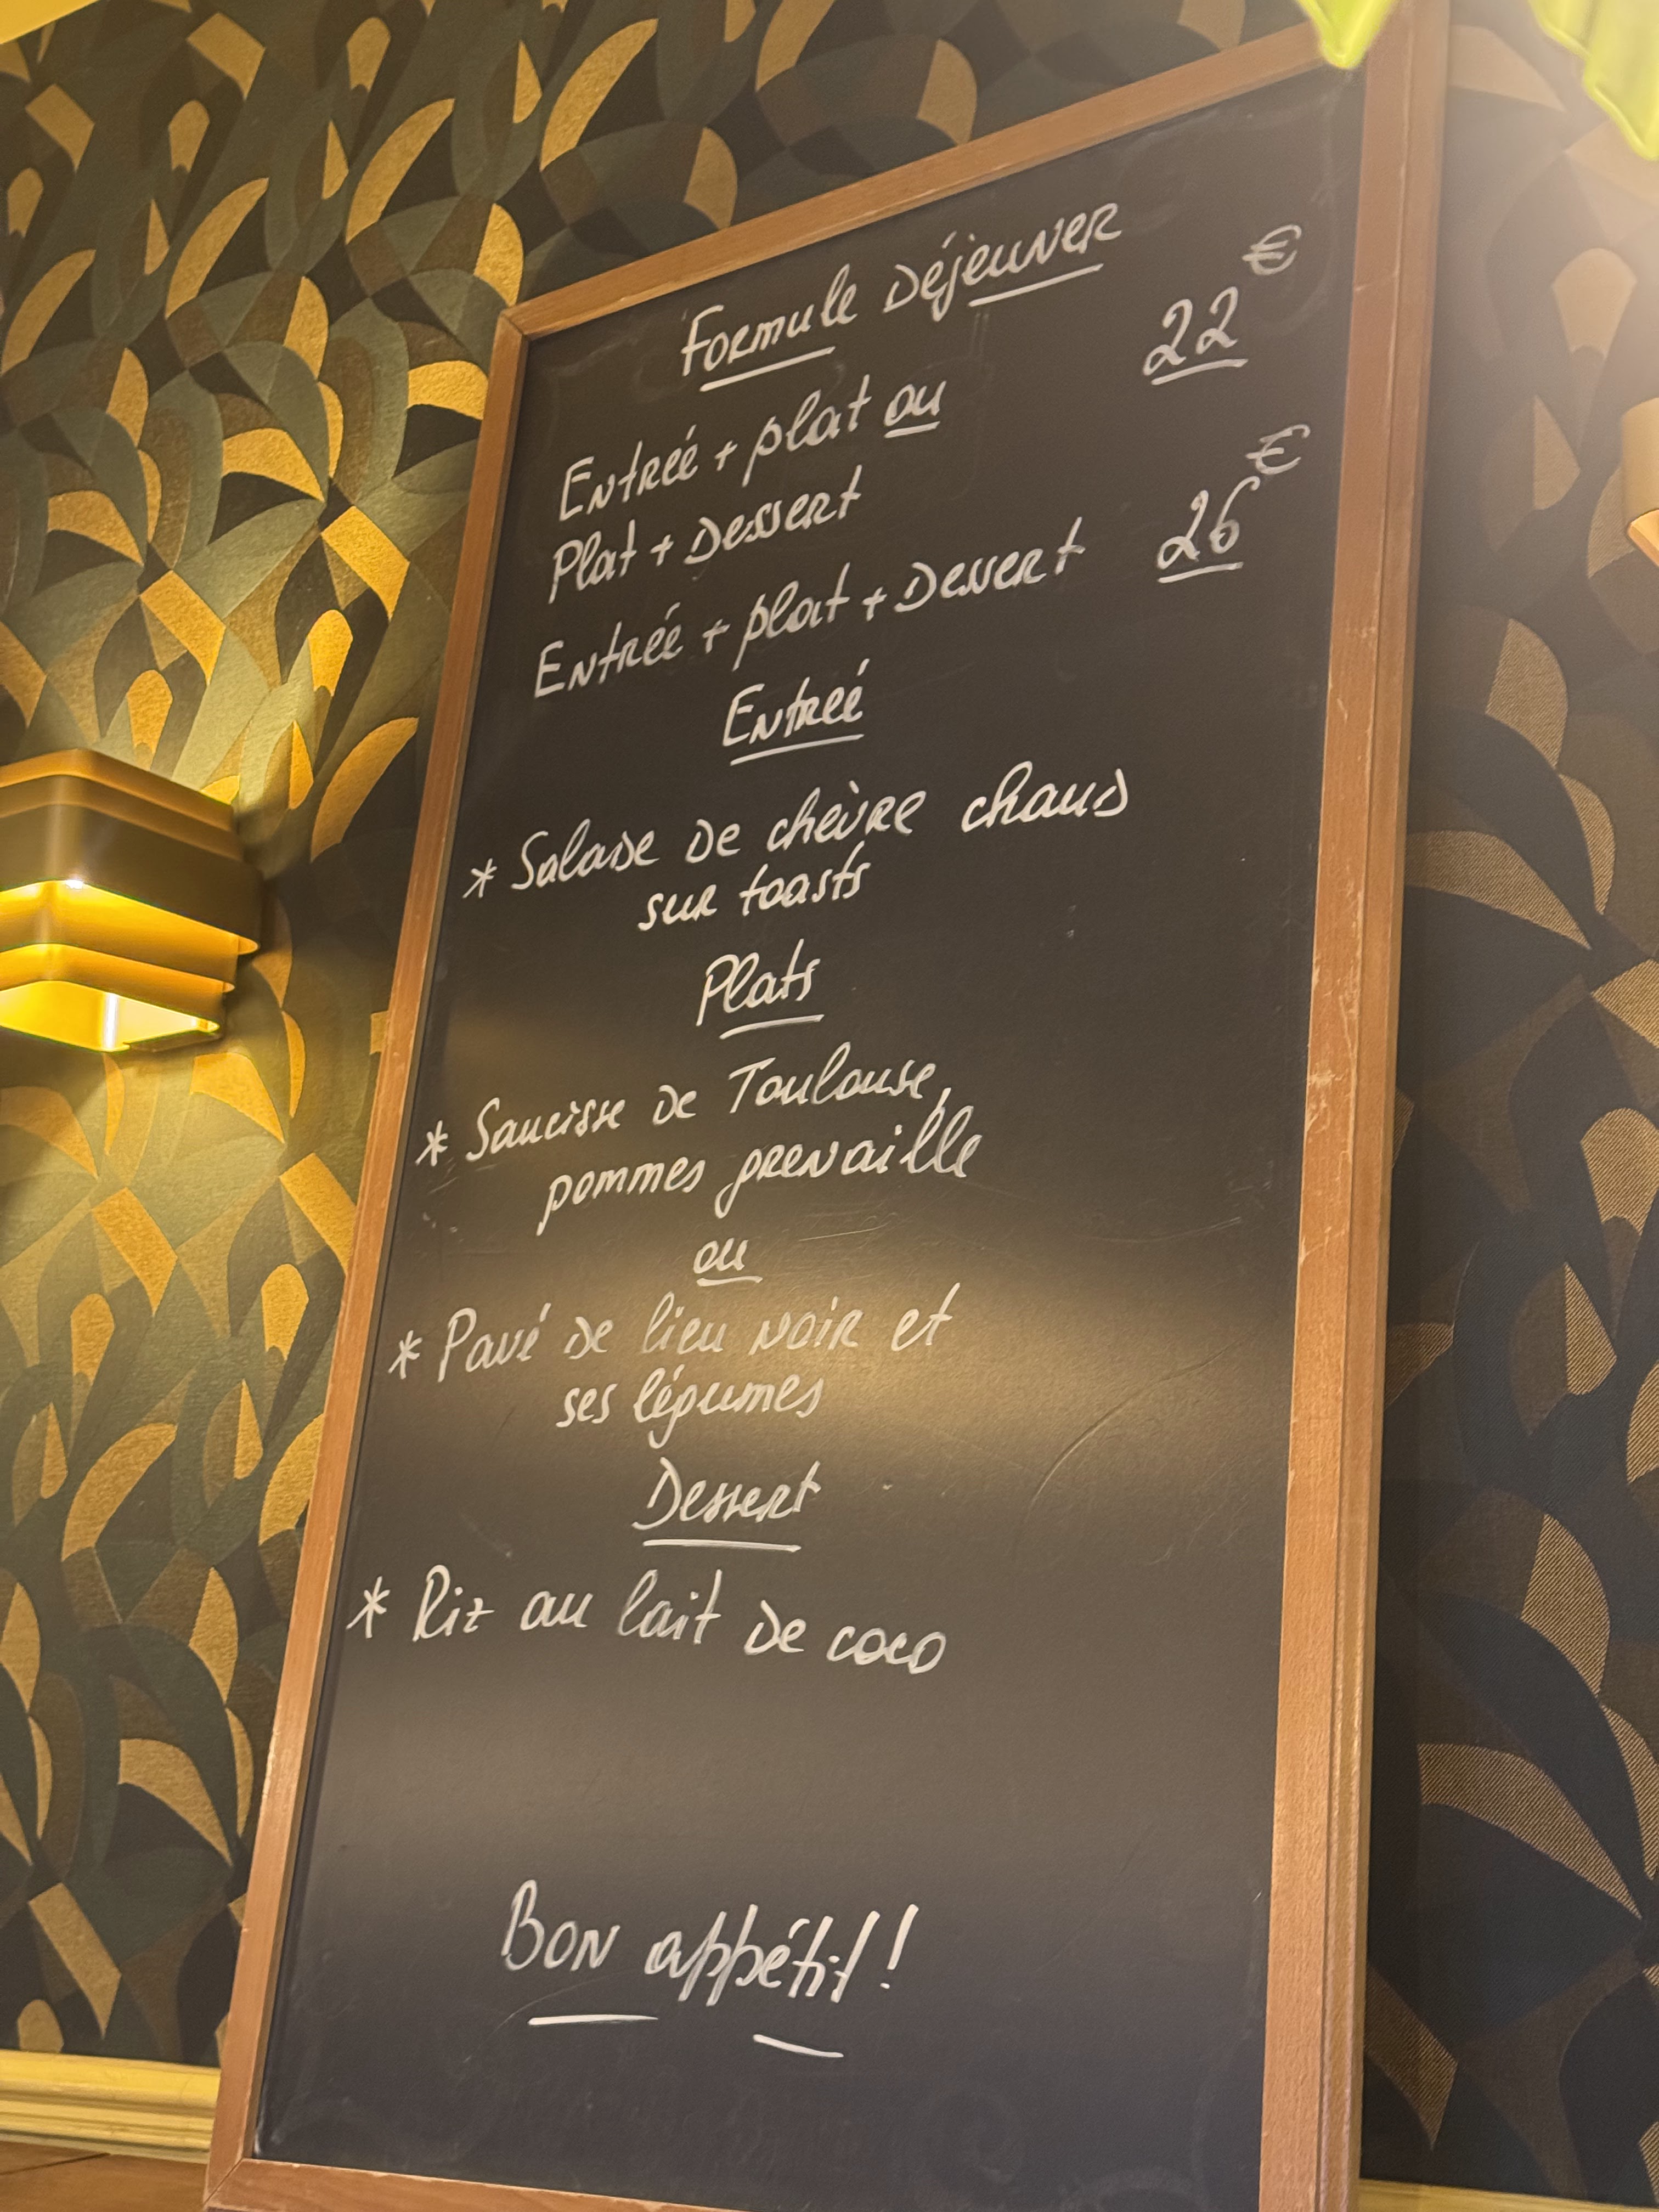 Formule Déjeuner
Entrée + plat ou 22€
Plat + Dessert
Entrée + plat + Dessert 26€
Entrée
* Salade de chèvre chaud
sur toasts
Plats
* Saucisse de Toulouse,
pommes grenaille
ou
* Pavé de lieu noir et
ses légumes
Dessert
* Riz au lait de coco
Bon appétit!